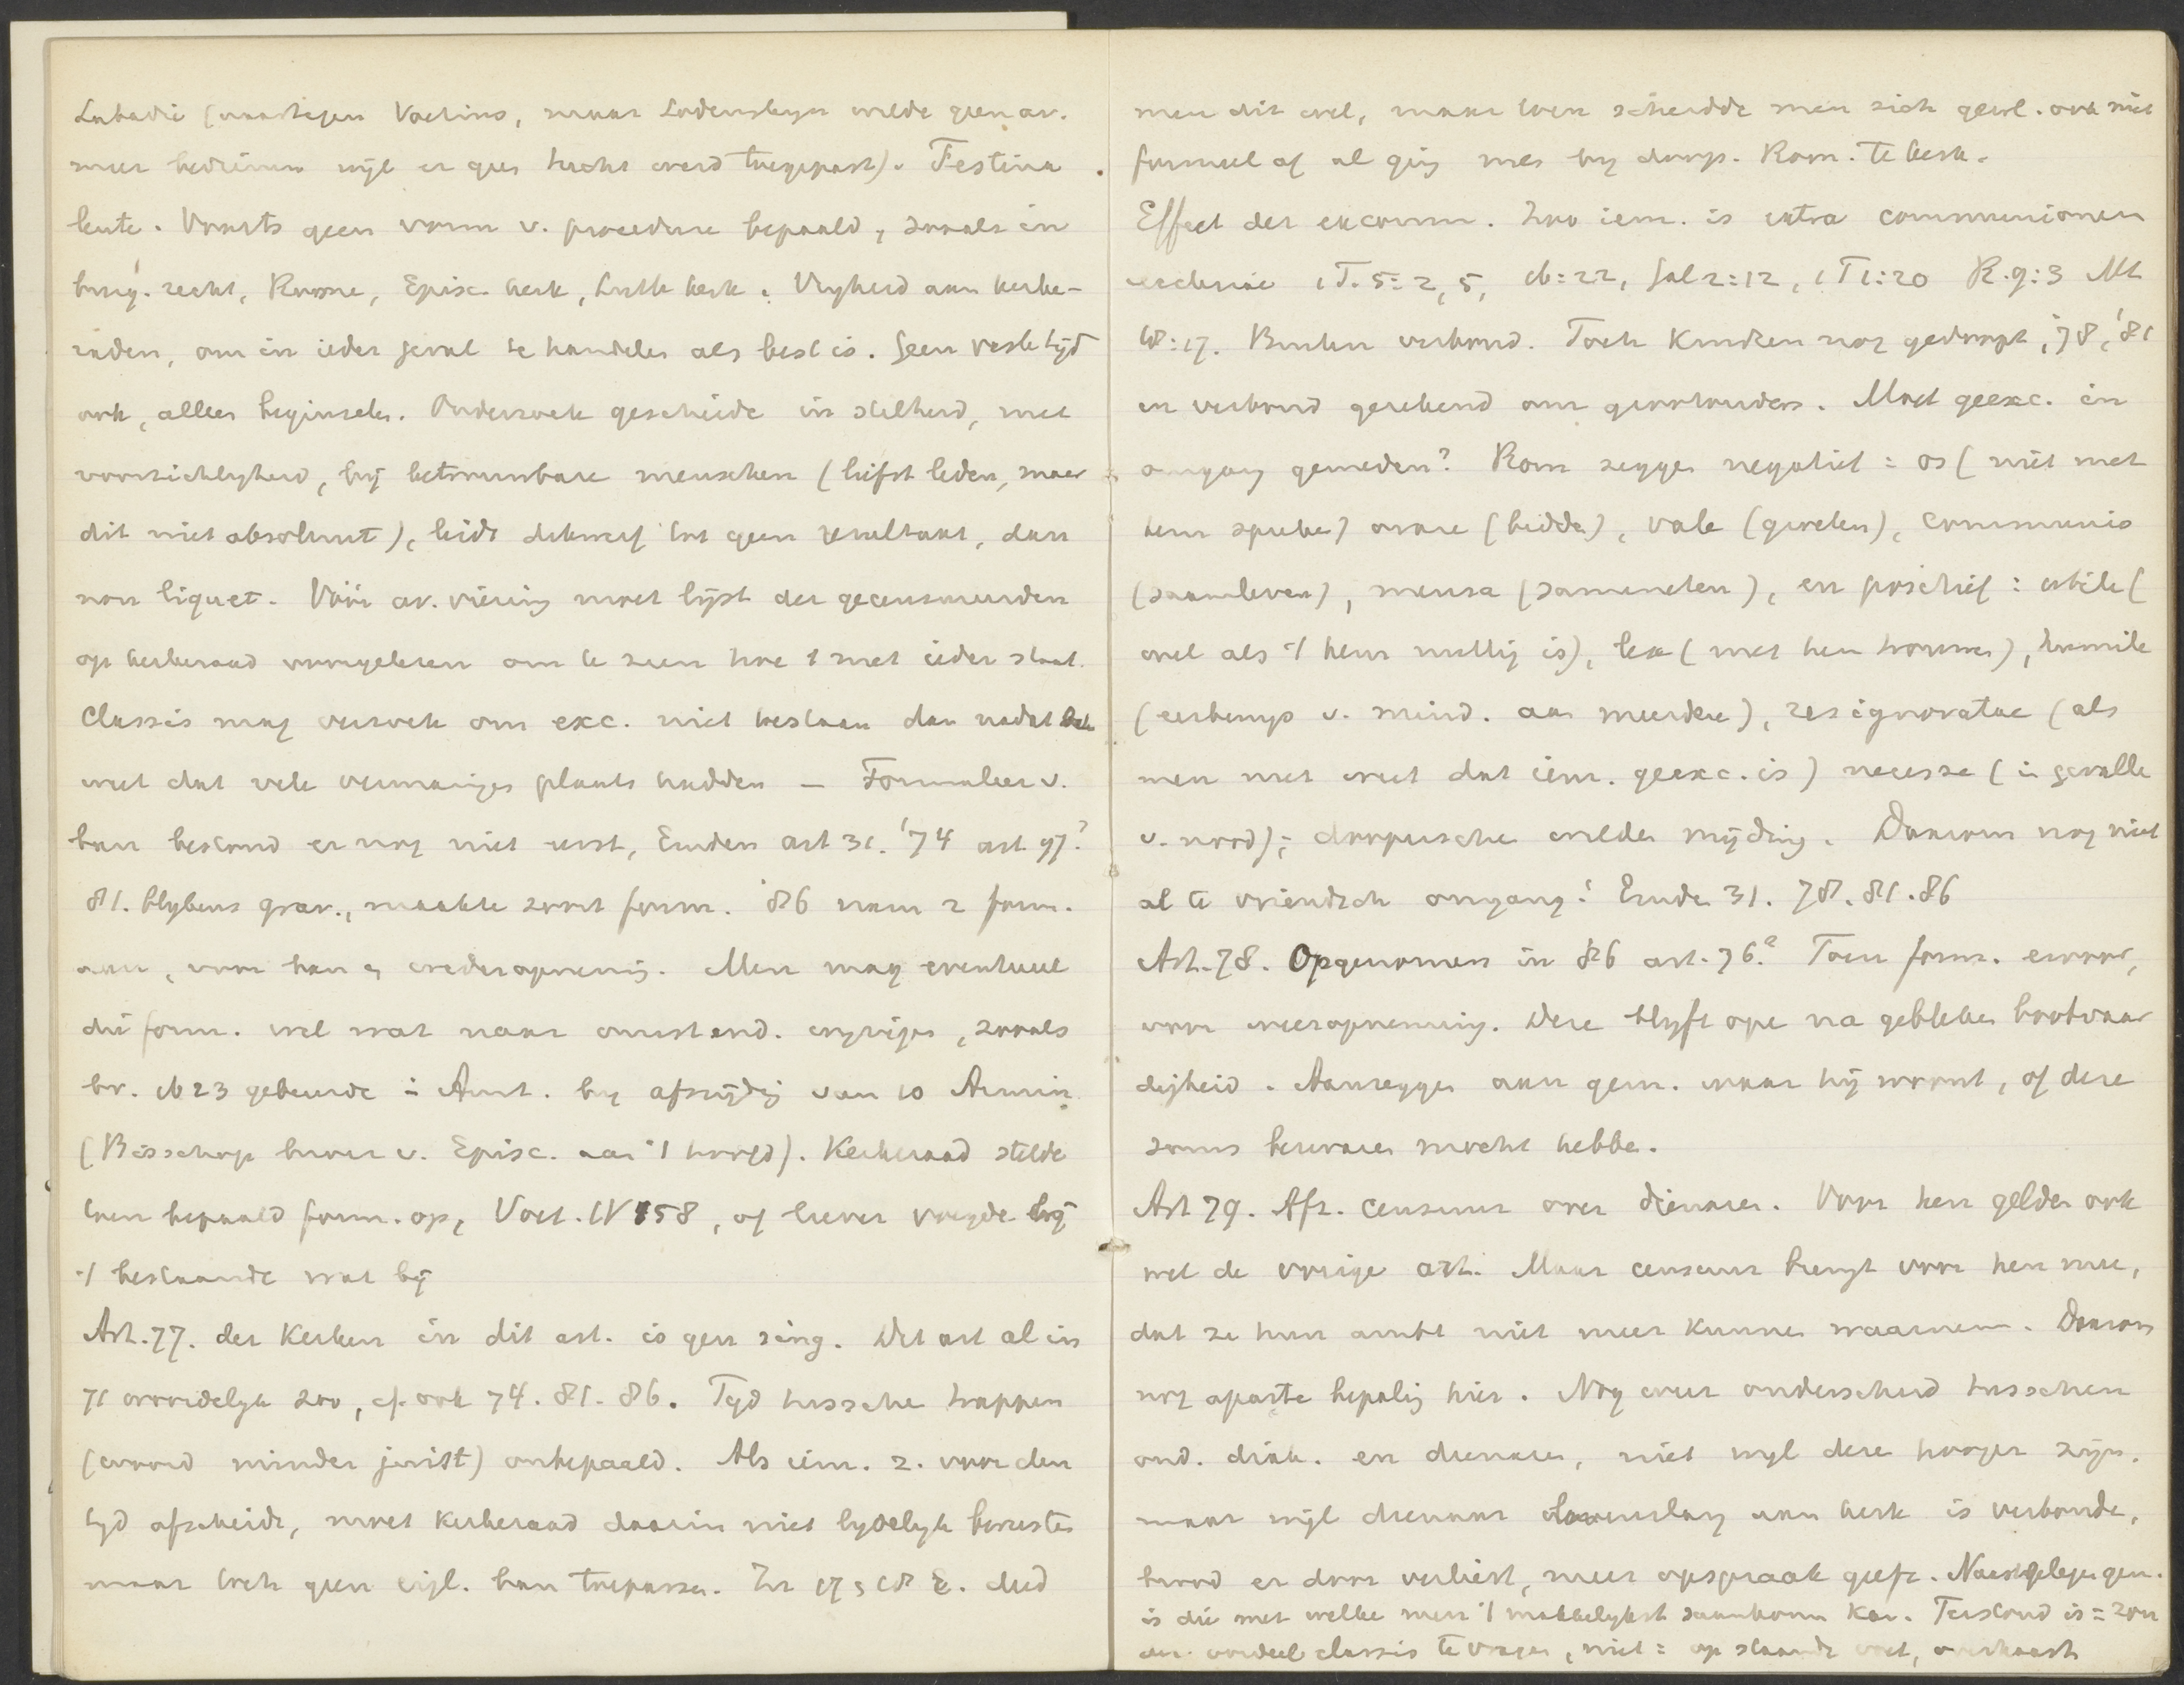 Labadie (daartegen Voetius, maar Lodensteyn wilde geen av.
meer bedienen wijl er geen tucht werd toegepast). Festina
lente. Voorts geen vorm v. procedure bepaald, zooals in
burg. recht, Rome, Episc. kerk, Luth kerk. Vryheid aan kerke-
raden, om in ieder geval te handelen als best is. Geen vaste tijd
ook, alleen beginselen. Onderzoek geschiede in stilheid, met
voorzichtigheid, bij betrouwbare menschen (liefst leden, maar
dit niet absoluut), leidt dikwerf tot geen resultaat, dan
non liquet. Vóór av. viering moet lijst der gecensureerden
op kerkeraad voorgelezen om te zien hoe 't met ieder staat.
Classis mag verzoek om exc. niet toestaan dan nadat
weet dat vele vermaningen plaats hadden — Formulier v.
ban bestond er nog niet eerst, Emden art 31. '74 art 97?
81. blykens grav., maakte soort form. '86 nam 2 form.
aan, voor ban en wederopneming. Men mag eventueel
die form. wel wat naar omstand. wyzigen, zooals
bv. 1623 gebeurde in Amst. by afsnijding van 10 Armin.
(Bisschop broer v. Episc. aan 't hoofd). Kerkeraad stelde
toen bepaald form. op, Voet. IV 858, of liever voegde bij
't bestaande wat bij
Art. 77. der Kerken in dit art. is gen sing. Dit art al in
71 woordelyk zoo, cf. ook 74. 81. 86. Tyd tusschen trappen
(woord minder juist) onbepaald. Als iem. z. voor dien
tyd afscheidt, moet Kerkeraad daarin niet lydelyk berusten
maar toch geen eigl. ban toepassen. In 17 en 18 E. deed
men dit wel, maar toen scheidde men zich gewl. ook niet
formeel af al ging men by doops. Rom. te kerk.
Effect der excomm. Zoo iem. is extra communionem
ecclesiae 1 . 5: 2, 5, 16:22, Gal 2:12, 1 T 1:20 R. 9:3 Mt
18:17. Buiten verbond. Toch Kinderen nog gedoopt, '78, '81
in verbond gerekend om grootouders. Moet geexc. in
omgang gemeden? Rom zeggen negatief: os (niet met
hem spreken) orare (bidden), vale (groeten), communio
(saamleven), mensa (samen eten), en positief: utile (
wel als 't hem nuttig is), lex (met hen trouwen), humile
(eerbewys v. mind. aan meerdere), res ignorata (als
men niet weet dat iem. geexc. is) necesse (in gevalle
v. nood); doopersche wilden mijding. Daarom nog niet
al te vriendsch omgang! Emden 31. 78. 81. 86
Art. 78. Opgenomen in '86 art. 76? Toen form. ervoor,
voor weeropneming. Deze blyft open na gebleken boetvaar
digheid. Aanzeggen aan gem. waar hij woont, of deze
soms bezwaren mocht hebben.
Art 79. Afz. censuur over dienaren. Voor hen gelden ook
wel de vorige art. Maar censuur brengt voor hen mee,
dat ze hun ambt niet meer kunnen waarnemen. Daarom
nog aparte bepaling hier. Nog weer onderscheid tusschen
oud. diak. en dienaren, niet wyl deze hooger zijn,
maar wijl dienaar levenslang aan kerk is verbonden,
brood er door verliest, meer opspraak geeft. Naastgelegen gem.
is die met welke men 't makkelykst saamkomen kan. Terstond is = zon
der oordeel classis te vragen, niet = op staande voet, overhaast